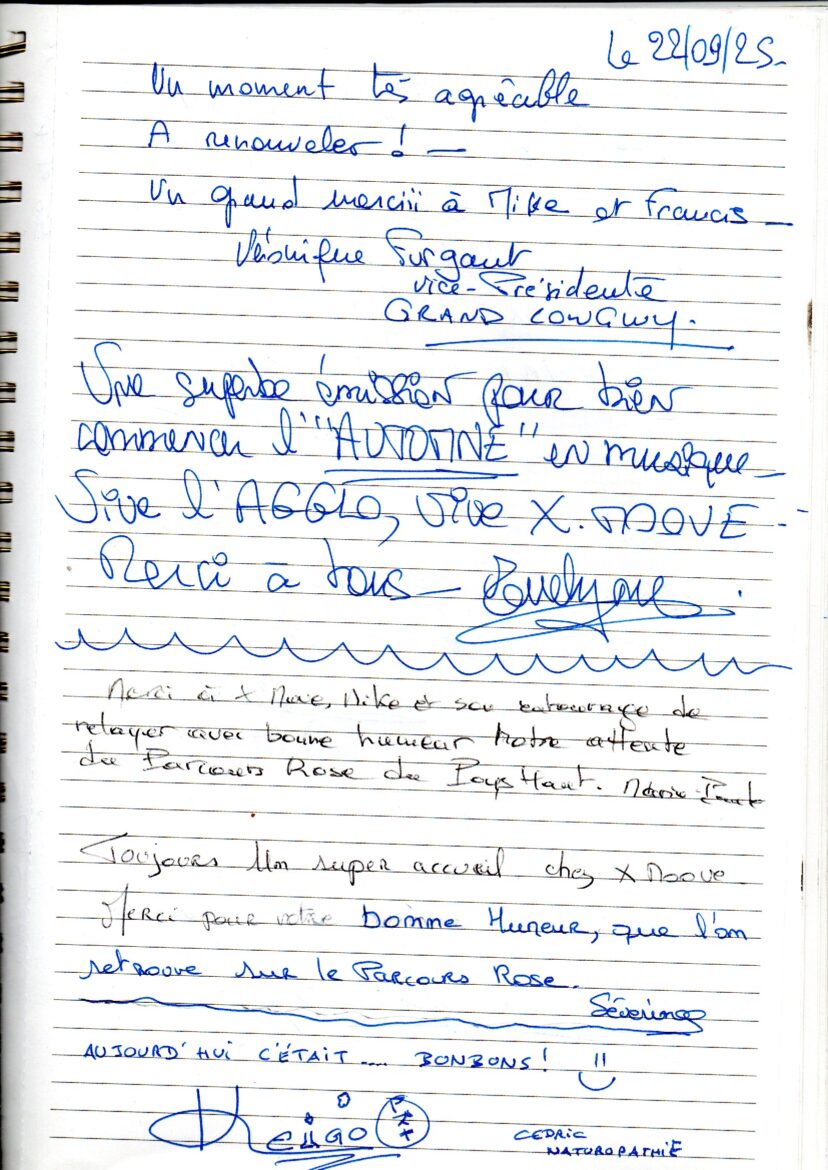 Le 22/09/25.
Un moment très agréable
A renouveler ! —
Un grand merciii à Mike et Francis —
Véronique Furgaut
Vice-Présidente
GRAND LONGWY.
Une superbe émission pour bien
commencer l'"AUTOMNE" en musique —
Vive l'AGGLO, vive X.MOOVE -
Merci à tous — Evelyne
Merci à X Move, Mike et son entourage de
relayer avec bonne humeur notre attente
du Parcours Rose du Pays Haut. Marie
Toujours Un super accueil chez X Moove
Merci pour votre bonne Humeur, que l'on
retrouve sur le Parcours Rose.
Séverine
AUJOURD'HUI C'ÉTAIT .... BONBONS !
CEDRIC
NATUROPATHIE